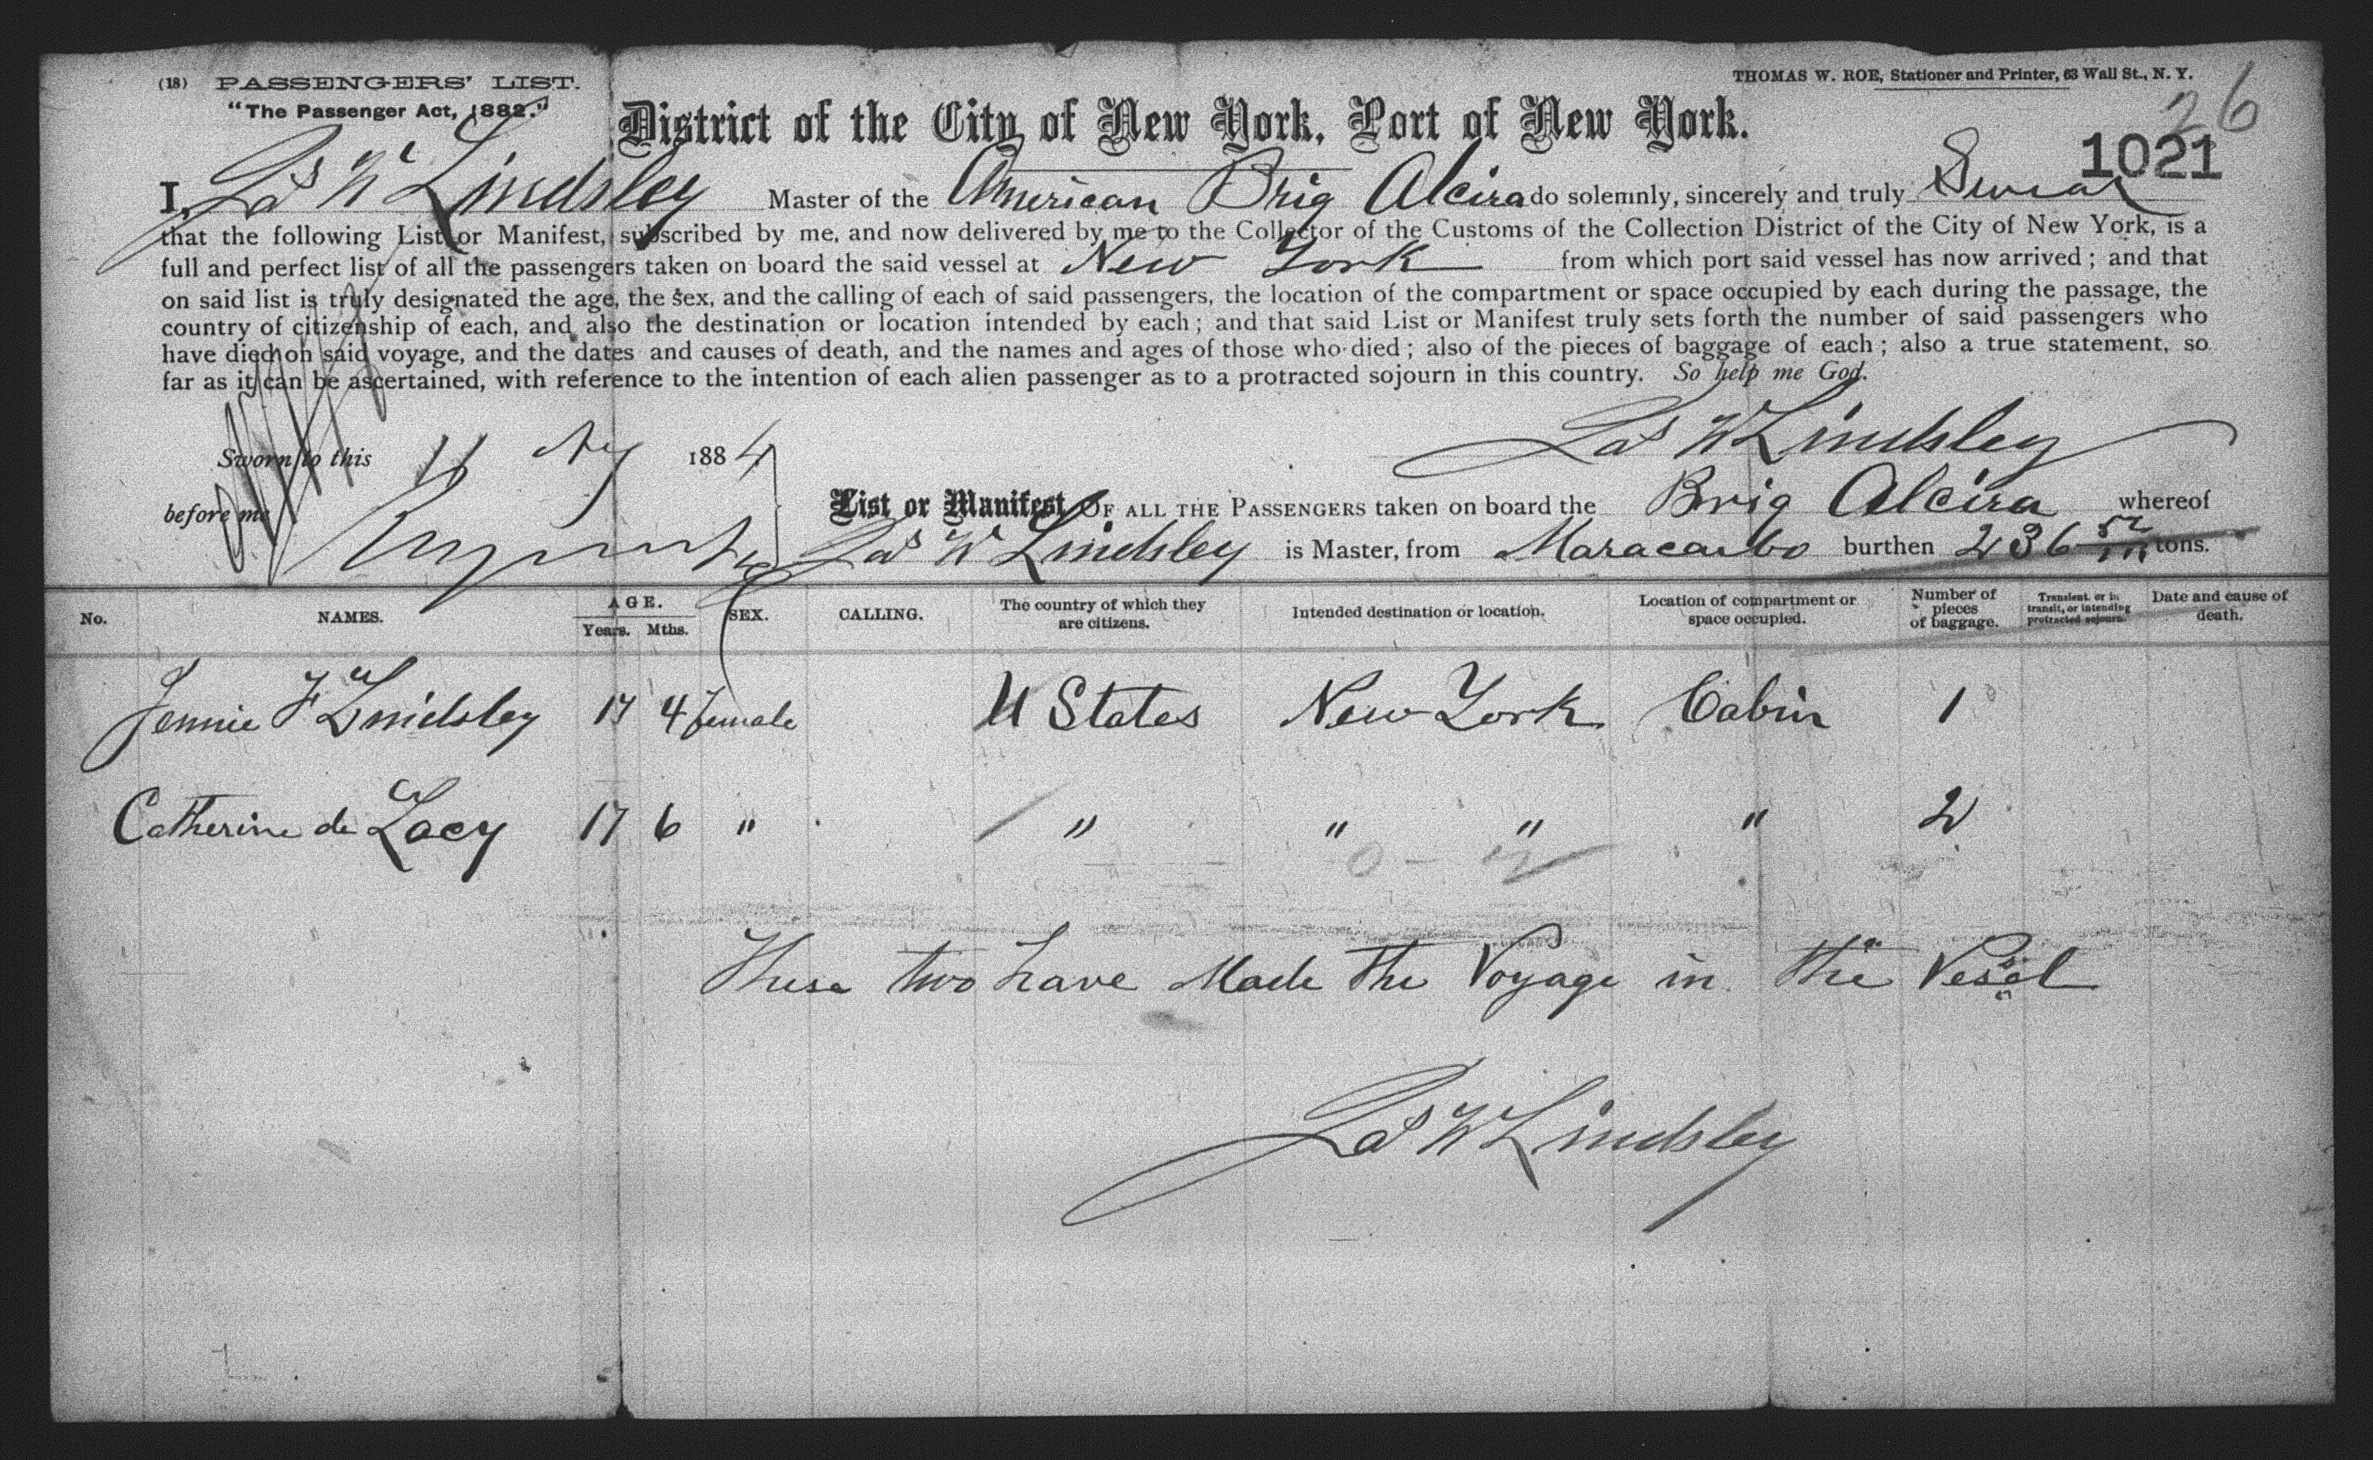 (18) PASSENGERS' LIST.
THOMAS W. ROE, Stationer and Printer, 63 Wall St., N. Y.
"The Passenger Act, 1882."
26
District of the City of New York, Port of New York.
1021
I, Jas W Lindsley Master of the American Brig Alcira do solemnly, sincerely and truly Swear
that the following List or Manifest, subscribed by me, and now delivered by me to the Collector of the Customs of the Collection District of the City of New York, is a
full and perfect list of all the passengers taken on board the said vessel at New York from which port said vessel has now arrived; and that
on said list is truly designated the age, the sex, and the calling of each of said passengers, the location of the compartment or space occupied by each during the passage, the
country of citizenship of each, and also the destination or location intended by each; and that said List or Manifest truly sets forth the number of said passengers who
have died on said voyage, and the dates and causes of death, and the names and ages of those who died; also of the pieces of baggage of each; also a true statement, so
far as it can be ascertained, with reference to the intention of each alien passenger as to a protracted sojourn in this country. So help me God.
Sworn to this 11 Aug 1884
Jas W Lindsley
before me
List or Manifest OF ALL THE PASSENGERS taken on board the Brig Alcira whereof
Jas W Lindsley is Master, from Maracaibo burthen 236 tons.
No. NAMES. AGE. Years. Mths. SEX. CALLING. The country of which they are citizens. Intended destination or location. Location of compartment or space occupied. Number of pieces of baggage. Transient, or in transit, or intending protracted sojourn. Date and cause of death.
Jennie F Lindsley 17 4 female U States New York Cabin 1
Catherine de Lacy 17 6 " " " " " 2
These two have Made the Voyage in the Vessel
Jas W Lindsley